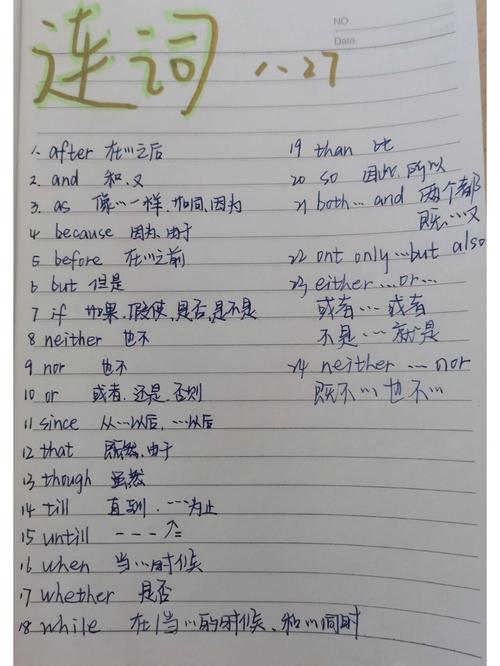 NO.
Date.
连词 1.27
1. after 在…之后
2. and 和.又
3. as 像…一样.如同.因为
4 because 因为.由于
5 before 在…之前
6 but 但是
7 if 如果.假使.是否.是不是
8 neither 也不
9 nor 也不
10 or 或者.还是.否则
11 since 从…以后, …以后
12 that 既然.由于
13 though 虽然
14 till 直到. …为止
15 untill - - - ↑=
16 when 当…时候
17 whether 是否
18 while 在/当…的时候、和…同时
19 than 比
20 so 因此, 所以
21 both... and 两个都
既…又
22 ont only...but also
23 either...or...
或者…或者
不是…就是
24 neither ... nor
既不…也不…